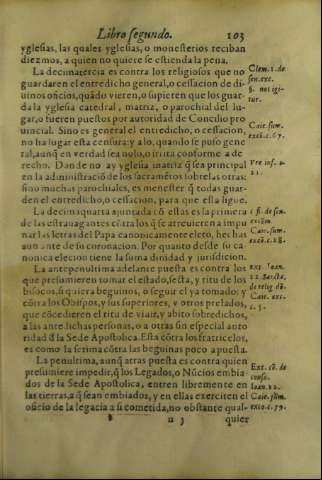 Libro segundo. 103
yglesias, las quales yglesias, o monesterios reciban
diezmos, a quien no quiere se estienda la pena.
La decimatercia es contra los religiosos que no
guardaren el entredicho general, o cessacion de di-
uinos oficios, quãdo vieren, o supieren que los guar-
da la yglesia catedral, matriz, o parochial del lu-
gar, o fueren puestos por autoridad de Concilio pro
uincial. Sino es general el entredicho, o cessacion,
no ha lugar esta censura: y a lo, quando se puso gene
ral, aunq̃ en verdad sea nulo, o irrita conforme a de-
recho. Donde no ay yglesia matriz q̃ sea principal
en la administraciõ de los sacramẽtos sobre las otras:
sino muchas parochiales, es menester q̃ todas guar-
den el entredicho, o cessacion, para que esta ligue.
La decimaquarta ajuntada cõ estas es la primera
de las estrauagantes cõtra los q̃ se atreuieren a impu
nar las letras del Papa canonicamente eleto, hechas
aun ante de su coronacion. Por quanto desde su ca
nonica elecion tiene la suma dinidad y jurisdicion.
La antepenultima adelante puesta es contra los
que presumieren tomar el estado, sesta, y ritu de los
bisocos, si quiera beguinos, o seguir el ya tomado: y
cõtra los Obispos, y sus superiores, y otros prelados,
que cõcedieren el ritu de viuir, y abito sobredichos,
a las antedichas personas, o a otras sin especial auto
ridad d̃ la Sede Apostolica. Esta cõtra los fratricelos,
es como la setima cõtra las beguinas poco a puesta.
La penultima, aunq̃ atras puesta es contra quien
presumiere impedir, q̃ los Legados, o Nũcios embia
dos de la Sede Apostolica, entren libremente en
las tierras, a q̃ sean embiados, y en ellas exerciten el
oficio de la legacia a si cometida, no obstante qual-
n 3 quier
Clem. 1. de
sen. exc.
§. nos igi-
tur.
Caie. sum.
excõ. c. 67.
Vre inf. n.
21.
1 fi. de sen.
Caie. sum.
excõ. c. 28.
exc. Ioan.
22. Sancta,
de relig dõ.
Caie. exc.
c. 5.
Ext. cõ. de
consu.
Ioan. 22.
Caie. sum.
excõ. c. 59.